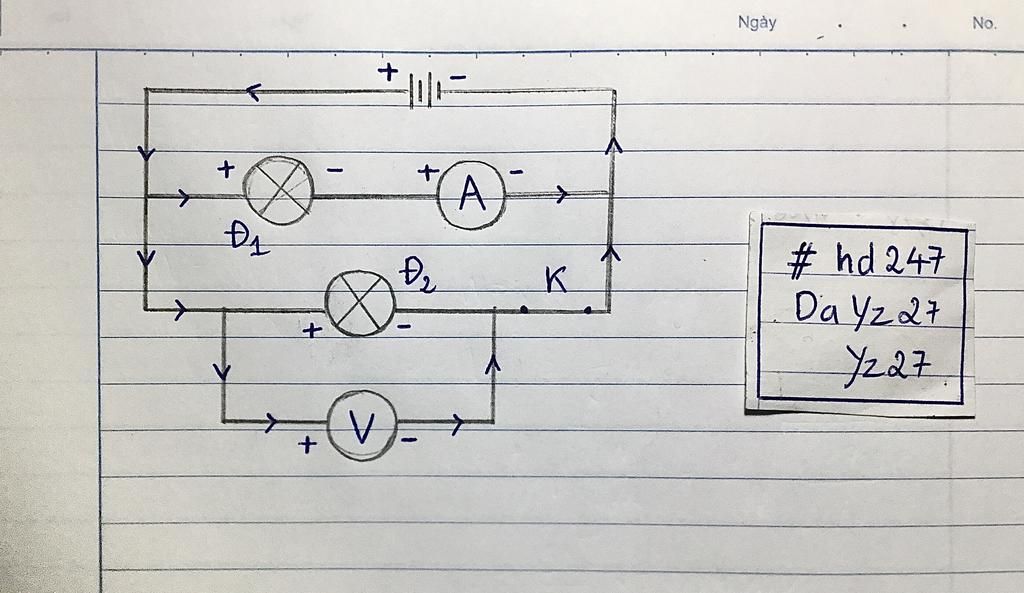 Ngày
No.
+ -
+ - + -
A
Đ1
Đ2
K
+ -
V
+ -
# hd247
Da Yz27
Yz27